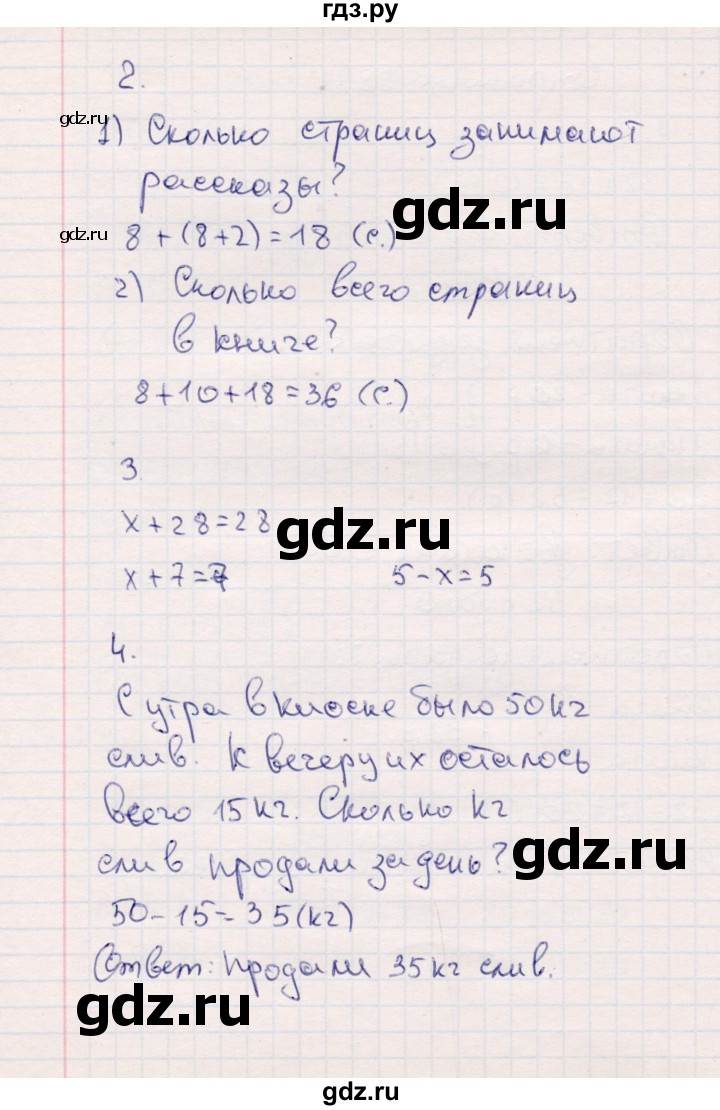 гдз.ру
2.
gdz.ru
1) Сколько страниц занимают
рассказы?
gdz.ru
gdz.ru
8 + (8+2) = 18 (с.)
2) Сколько всего страниц
в книге?
8+10+18=36 (с.)
3.
x+28=28
gdz.ru
x+7=7
5-x=5
4.
С утра в киоске было 50 кг
слив. К вечеру их осталось
всего 15 кг. Сколько кг
слив продали за день?
gdz.ru
50-15=35(кг)
Ответ: продали 35 кг слив.
gdz.ru
gdz.ru